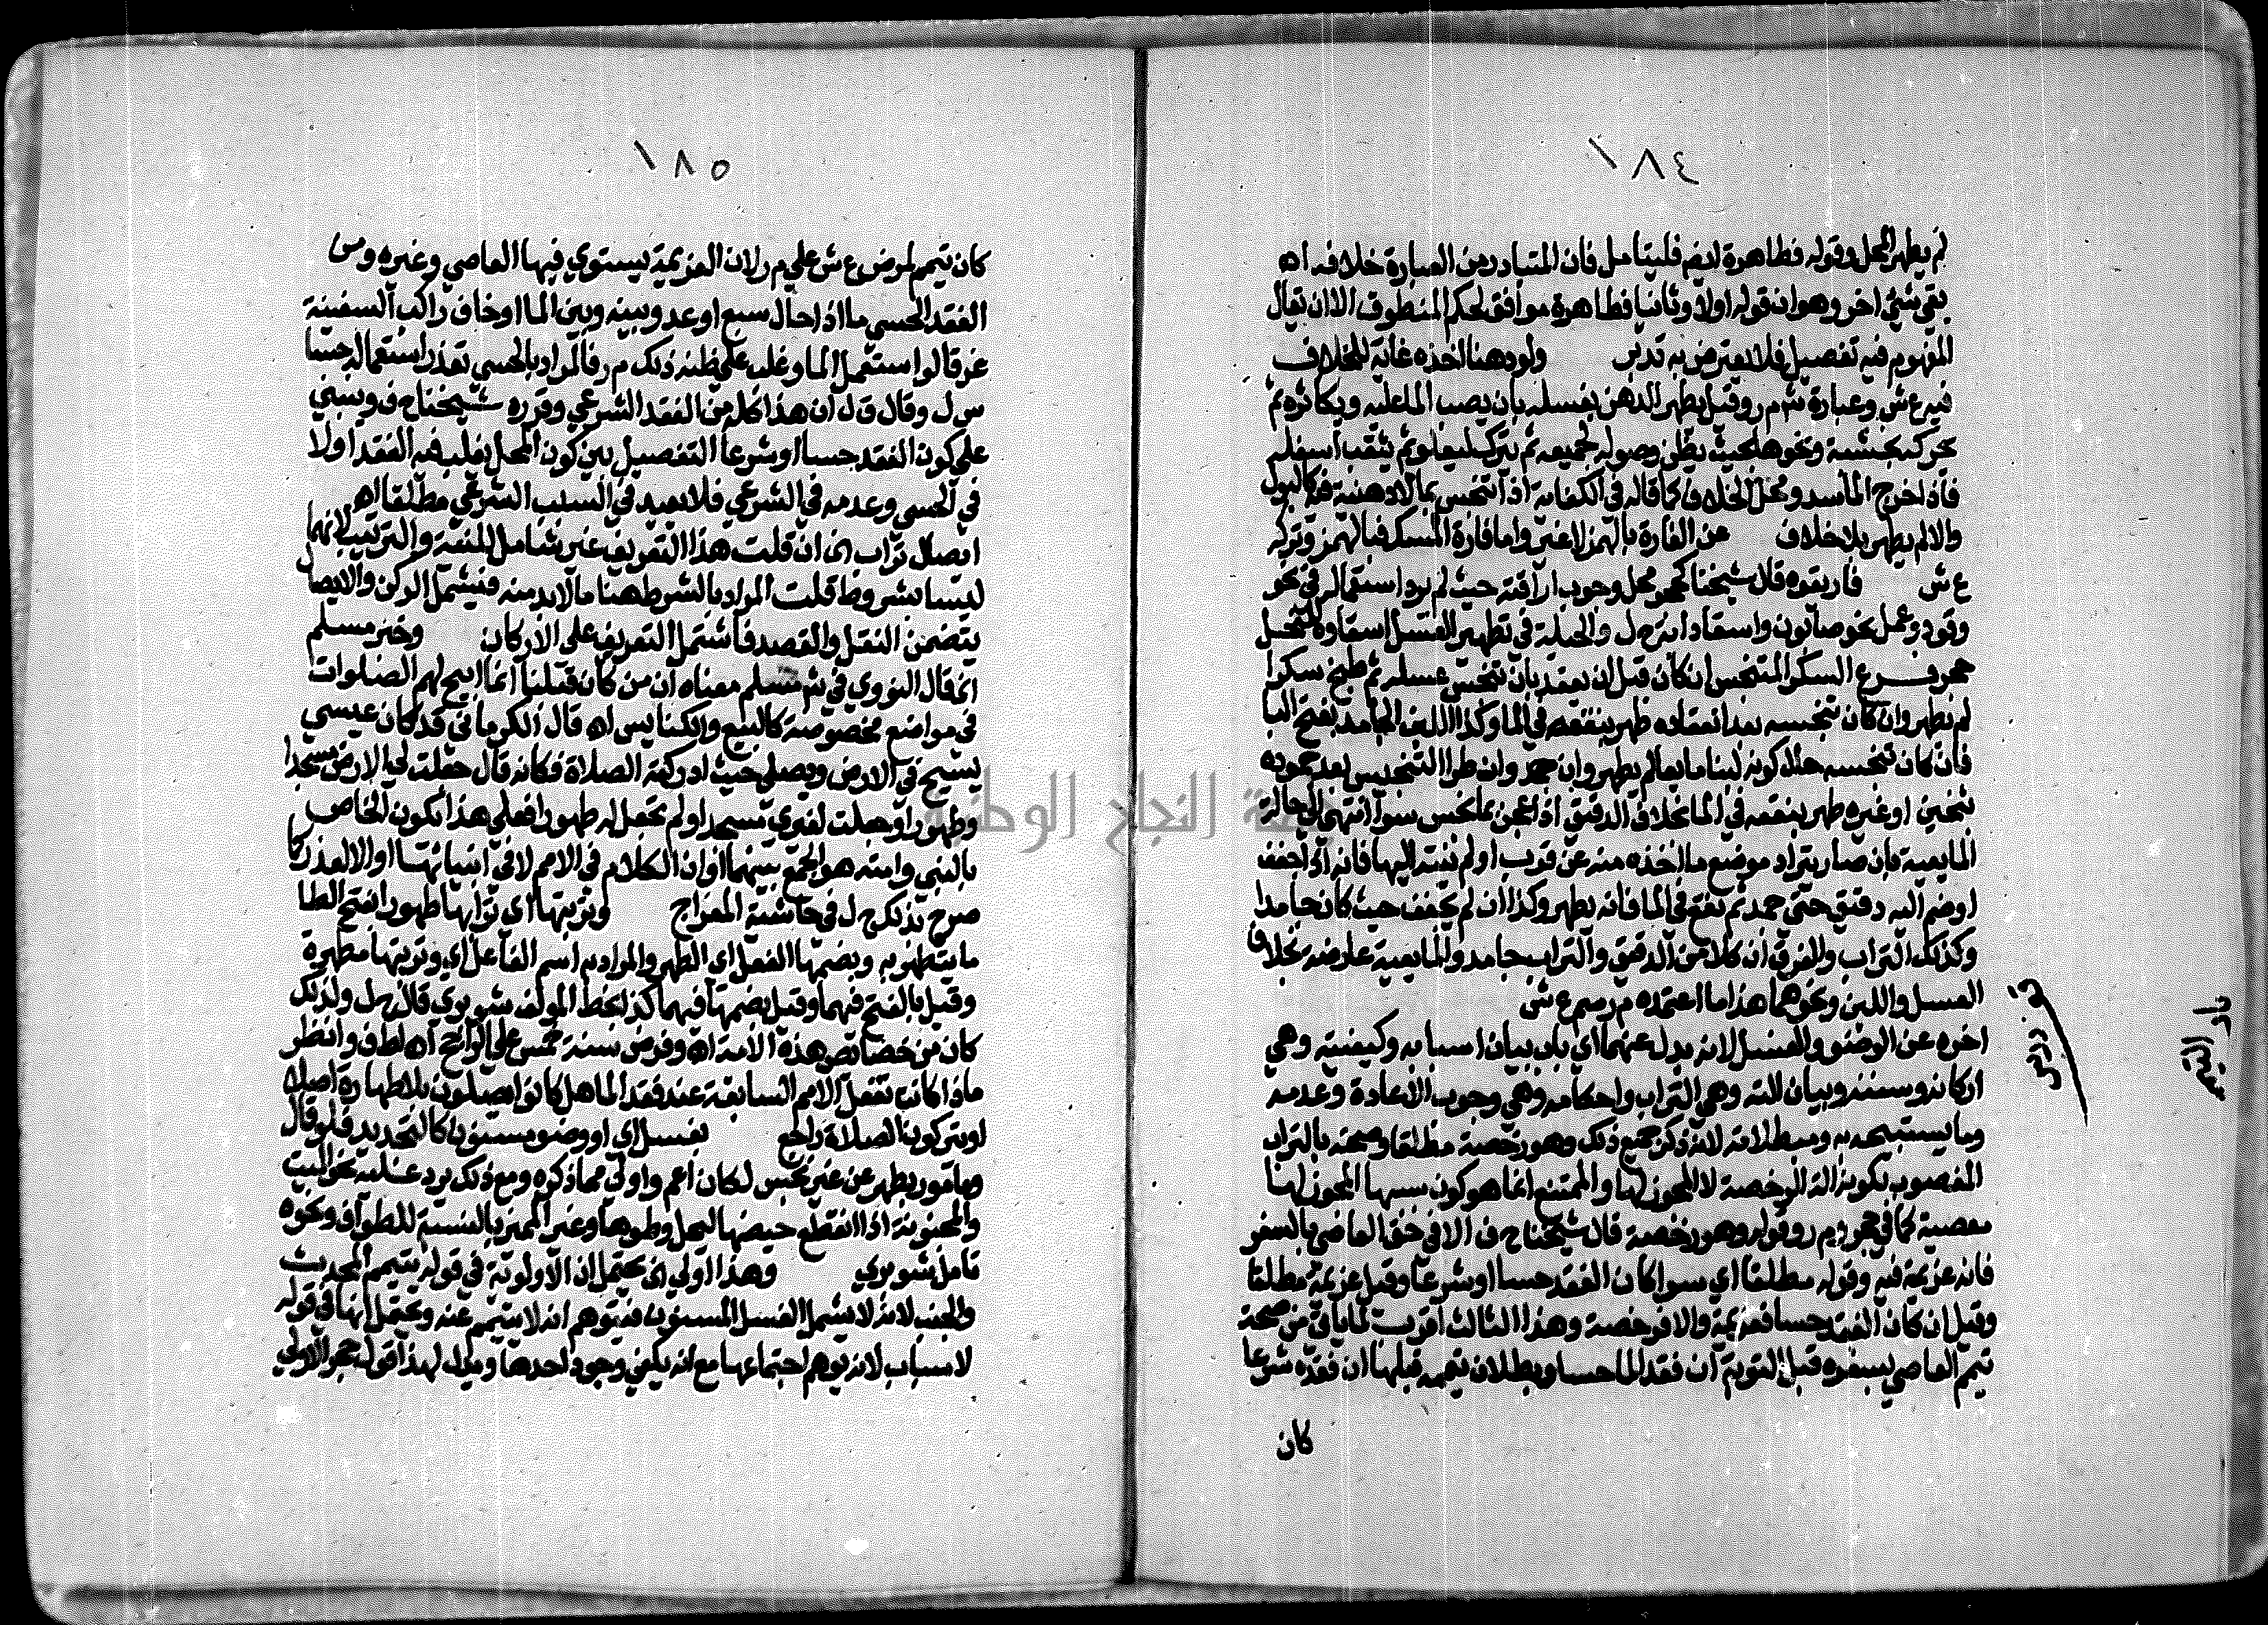 ١٨٤
لم يطهر المحل وقوله فظاهرة لايضر فليتامل فان المتبادر من العبارة خلافه اه
بقي شئ اخر وهو ان قوله اولا وثانيا فطاهرة موافق لحكم المنطوق الا ان يقال
المفهوم فيه تفصيل فلا يعترض به تدبر ولو دهنا اخذه غاية للخلاف
فيه ع ش وعبارة ش م ر وقيل يطهر الدهن بغسله بان يصب الما عليه ويكاثره ثم
يحركه بخشبة ونحوها بحيث يظن وصوله لجميعه ثم يترك ليعلو ثم يثقب اسفله
فاذا خرج الما سد ومحل الخلاف كما قاله في الكفاية اذا تنجس بما لا دهنية فيه كالبول
والا لم يطهر بلا خلاف عن الفارة بالهمز لا غير واما فارة المسك فبالهمز وتركه
ع ش فاريقوه قال شيخنا كحجر محل وجوب اراقته حيث لم يرد استعماله في نحو
وقود وعمل نحو صابون واسقاء دابة ح ل والحيلة في تطهير العسل اسقاوه للنحل
حجر فرع السكر المتنجس ان كان قبل ان يعقد بان تنجس عسله ثم طبخ سكرا
لم يطهر وان كان تنجسه بعد انعقاده طهر بنقعه في الما وكذا اللبن الجامد بفتح البا
فان كان تنجسه حال كونه لبنا مايعا لم يطهر وان جمد وان طرا التنجيس بعد جموده
بثخين او غيره طهر بنقعه في الما بخلاف الدقيق اذا عجن بما نجس سوا انتهى الى حالة
المايعية بان صار يتراد موضع ما اخذه منه عن قرب او لم ينته اليها فانه اذا جفف
او ضم اليه دقيق حتى جمد ثم نقع في الما فانه يطهر وكذا ان لم يجفف حيث كان جامدا
وكذلك التراب والفرق ان كلا من الدقيق والتراب جامد والمايعية عارضة بخلاف
العسل واللبن ونحوهما هذا ما اعتمده م ر سم ع ش
اخره عن الوضو والغسل لانه بدل عنهما اي باب بيان اسبابه وكيفيته وهي
اركانه وسننه وبيان الته وهي التراب واحكامه وهي وجوب الاعادة وعدمه
وما يستبيحه به ومبطلاته لانه ذكر جميع ذلك وهو رخصة مطلقا وصحته بالتراب
المغصوب لكونه الة الرخصة لا المجوز لها والممتنع انما هو كون سببها المجوز لها
معصية كما في حجر وم ر وقوله وهو رخصة قال شيخنا ح ف الا في حق العاصي بالسفر
فانه عزيمة فيه وقوله مطلقا اي سوا كان الفقد حسا او شرعا وقيل عزيمة مطلقا
وقيل ان كان الفقد حسا فعزيمة والا فرخصة وهذا الثالث اقرب لما ياتي من صحة
تيمم العاصي بسفره قبل التوبة ان فقد الما حسا وبطلان تيممه قبلها ان فقده شرعا
كان
باب التيمم
١٨٥
كان تيمم لمرض ع ش على م ر لان العزيمة يستوي فيها العاصي وغيره ومن
الفقد الحسي ما اذا حال سبع او عدو بينه وبين الما او خاف راكب السفينة
غرقا لو استعمل الما وغلب على ظنه ذلك م ر فالمراد بالحسي تعذر استعماله حسا
س ل وقال ق ل ان هذا كله من الفقد الشرعي وقرره شيخنا ح ف وينبني
على كون الفقد حسا او شرعا التفصيل بين كون المحل يغلب فيه الفقد او لا
في الحسي وعدمه في الشرعي فلا يعيد في السبب الشرعي مطلقا اه
ايصال تراب الخ ان قلت هذا التعريف غير شامل للنية والترتيب لانهما
ليسا بشروط قلت المراد بالشرط هنا ما لا بد منه فيشمل الركن والايصال
يتضمن النقل والقصد فاشتمل التعريف على الاركان وخبر مسلم
الخ قال النووي في ش مسلم معناه ان من كان قبلنا انما ابيح لهم الصلوات
في مواضع مخصوصة كالبيع والكنايس اه قال الكرماني قد كان عيسى
يسيح في الارض ويصلي حيث ادركته الصلاة فكانه قال جعلت لي الارض مسجدا
وطهورا وجعلت لغيري مسجدا ولم تجعل له طهورا فعلى هذا يكون الخاص
بالنبي وامته هو الجمع بينهما او ان الكلام في الامم لا في انبيائها او الا لعذر كما
صرح بذلك ح ل في حاشية المعراج وتربتها اي ترابها طهورا بفتح الطا
ما يتطهر به وبضمها الفعل اي الطهر والمراد به اسم الفاعل اي وتربتها مطهرة
وقيل بالفتح فيهما وقيل بضمها فيهما كذا بخط المولف شوبري قال ح ل ولذلك
كان من خصائص هذه الامة اه وفرض سنة خمس على الراجح اه لطف وانظر
ماذا كانت تفعل الامم السابقة عند فقد الما هل كانوا يصلون بلا طهارة اصلا
او يتركون الصلاة راجع بغسل اي او وضو مسنون كالتجديد فلو قال
ومامور بطهر عن غير نجس لكان اعم واولى مما ذكره ومع ذلك يرد عليه نحو الميت
والمجنونة اذا انقطع حيضها ليحل وطوها وغير المميز بالنسبة للطواف ونحوه
تامل شوبري وهذا اولى الخ يحتمل ان الاولوية في قوله يتيمم المحدث
والجنب لانه لا يشمل الغسل المسنون فيتوهم انه لا يتيمم عنه ويحتمل انها في قوله
لاسباب لانه يوهم اجتماعها مع انه يكفي وجود احدها ويدل لهذا قول حجر الاولى